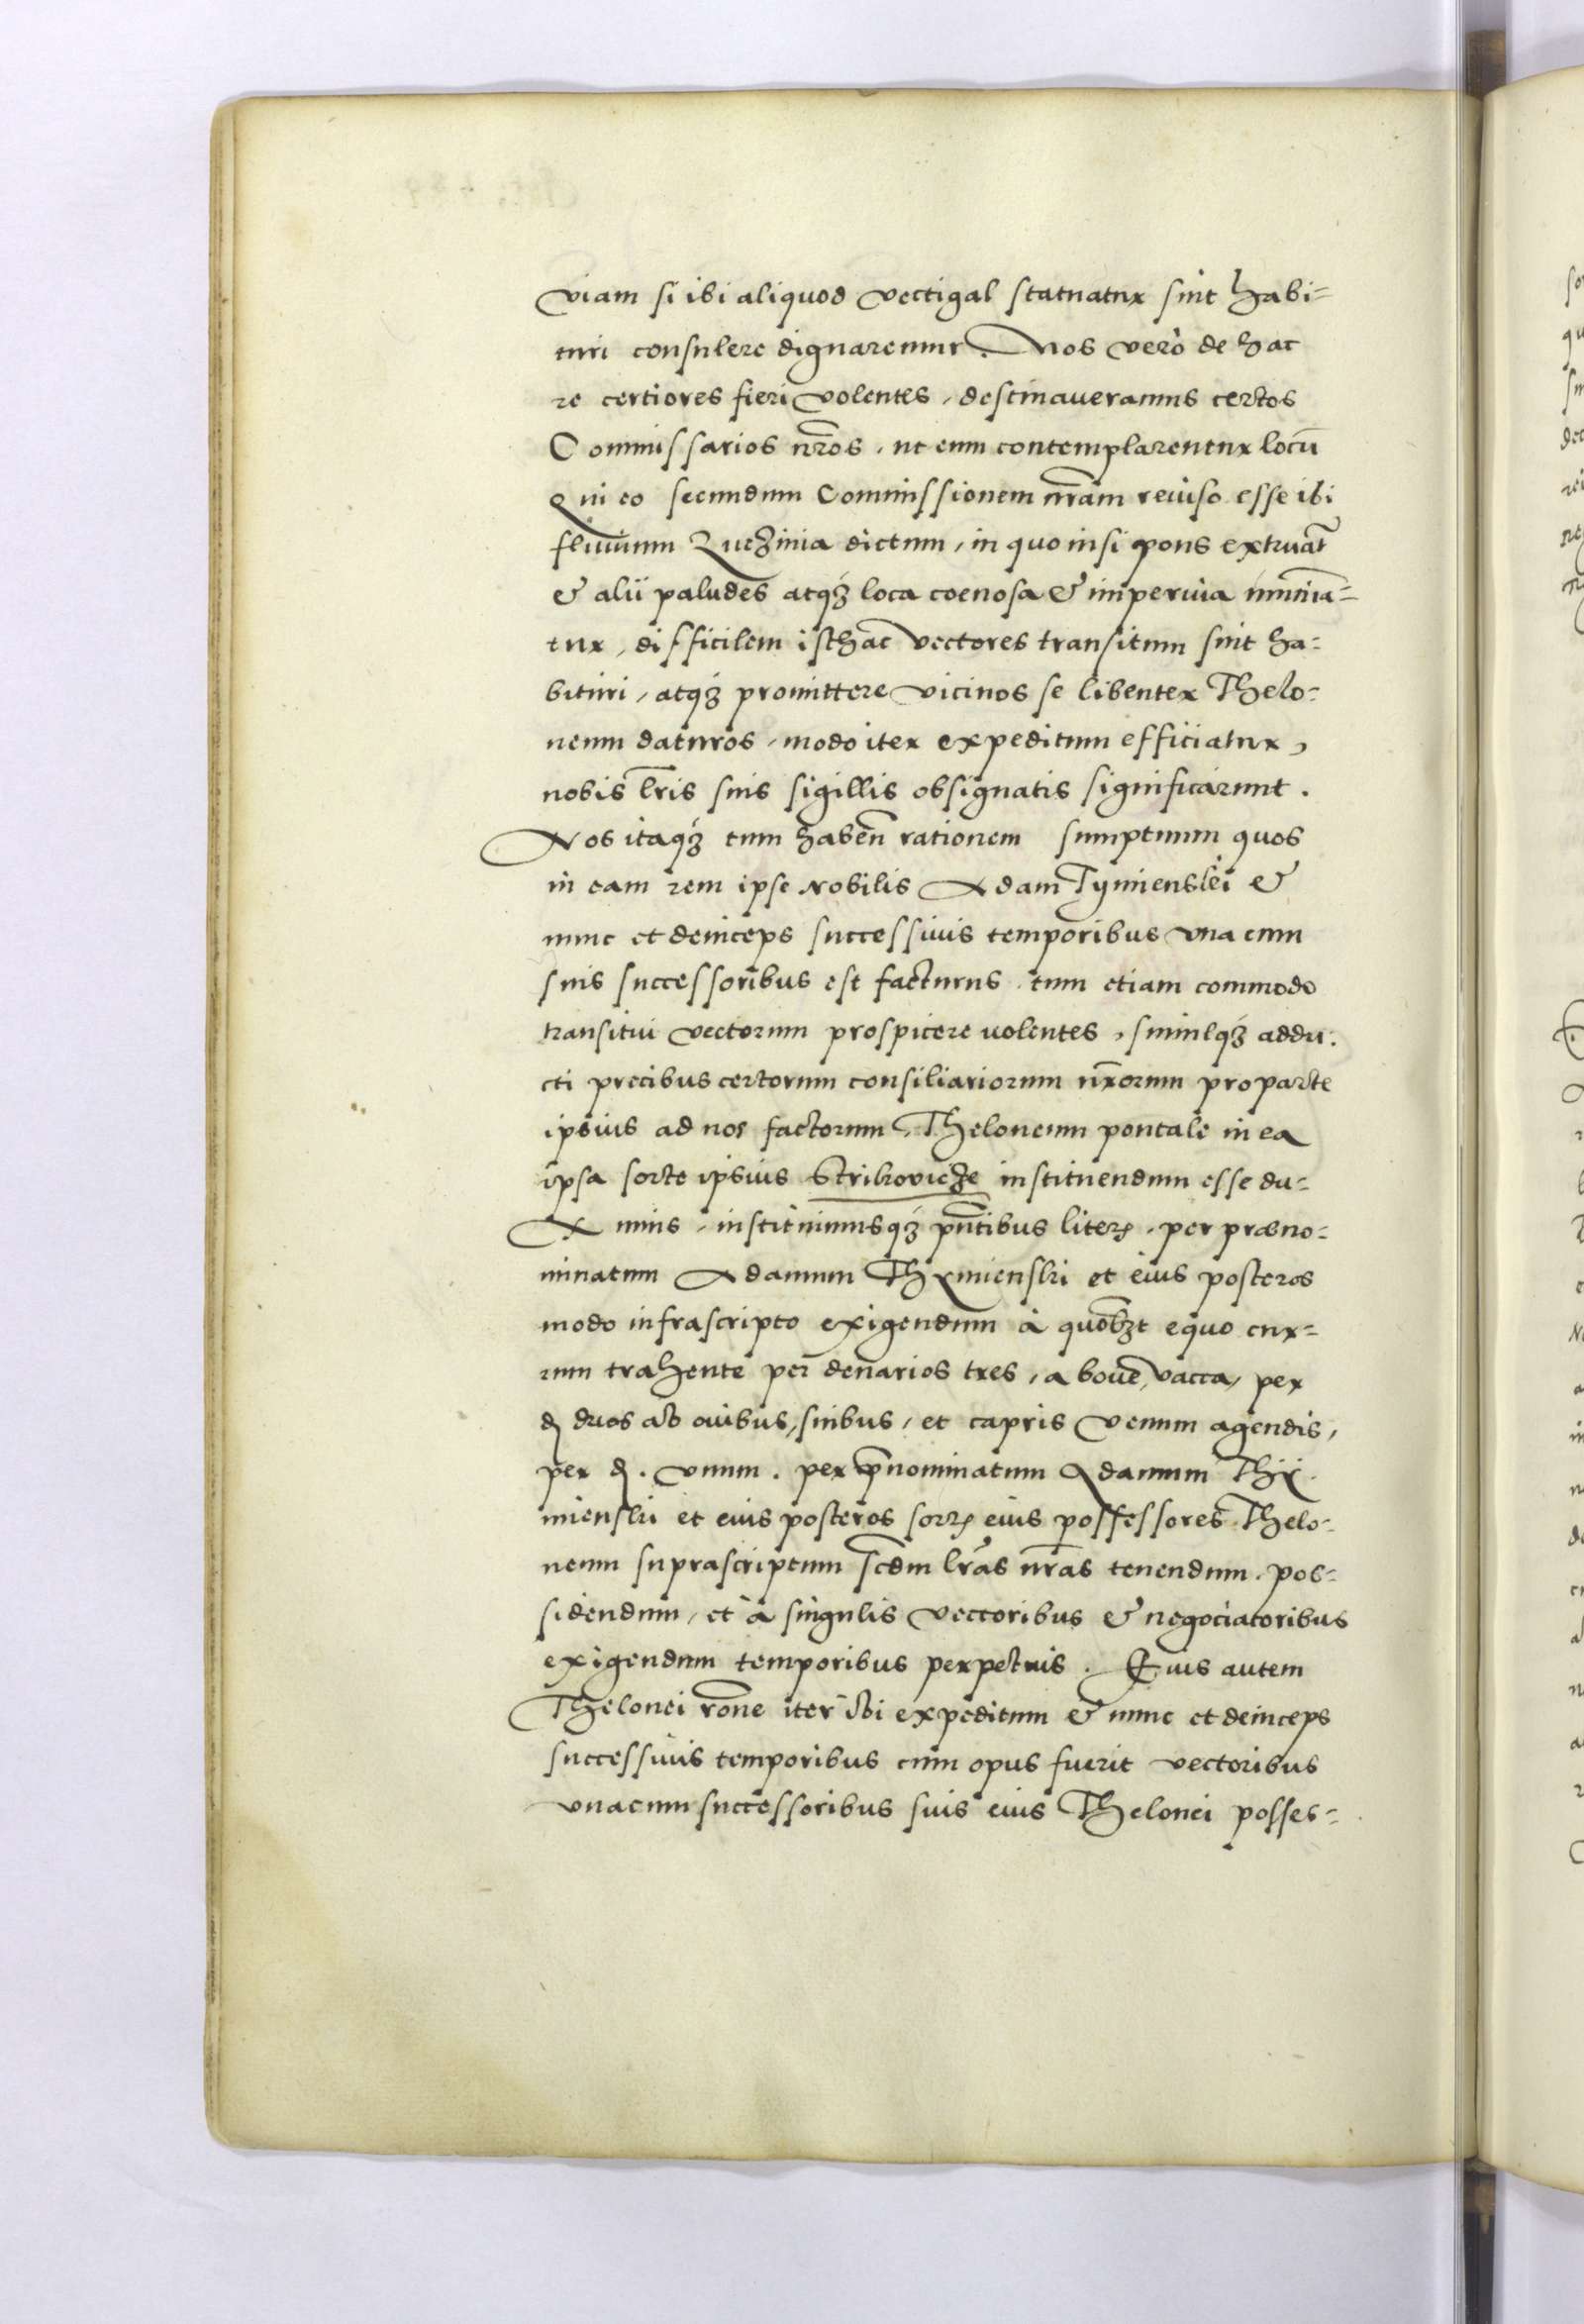 viam si ibi aliquod vectigal statuatur sint habi=
turi consulere dignaremur. Nos verò de hac
re certiores fieri volentes, destinaueramus certos
Commissarios nr̃os, ut eum contemplarentur locū
Qui eo secundum Commissionem nr̃am reuiso esse ibi
fluuium Zuezinia dictum, in quo nisi pons extruat̃
& alii paludes atq́ꝫ loca coenosa & imperuia muniã=
tur, difficilem isthac vectores transitum sint ha=
bituri, atq́ꝫ promittere vicinos se libenter Thelo=
neum daturos, modo iter expeditum efficiatur,
nobis lr̃is suis sigillis obsignatis significarunt.
Nos itaq́ꝫ tum haben̄ rationem sumptuum quos
in eam rem ipse Nobilis Adam Tyminski &
nunc et deinceps successiuis temporibus vna cum
suis successoribus est facturus, tum etiam commodo
transitui vectorum prospicere uolentes, simulq́ꝫ addu=
cti precibus certorum consiliariorum nr̃orum pro parte
ipsius ad nos factorum, Theloneum pontale in ea
ipsa sorte ipsius Strikovicze instituendum esse du=
X imus, instituimusq́ꝫ pn̄tibus literꝭ, per præno=
minatum Adamum Thymienski et eius posteros
modo infrascripto exigendum à quolꝫt equo cur=
rum trahente per denarios tres, a boue, vacca, per
đ duos ab ouibus, suibus, et capris venum agendis,
per đ. vnum. per p̄nominatum Adamum Thy=
mienski et eius posteros sortꝭ eius possessores Thelo=
neum suprascriptum scđm lr̃as nr̃as tenendum, pos=
sidendum, et à singulis vectoribus & negociatoribus
exigendum temporibus perpetuis. Eius autem
Thelonei rōne iter ibi expeditum & nunc et deinceps
successiuis temporibus cum opus fuerit vectoribus
vnacum successoribus suis eius Thelonei posses=